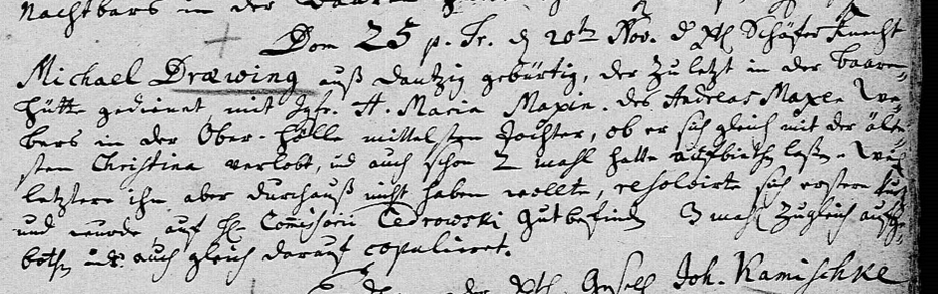 Nachtbars in der Baaren
Dom 25 p. Tr. d 20t Nov. d Schäfer Knecht
Michael Dræwing auß Dantzig gebürtig, der zu letzt in der Baaren-
hütte gedienet, mit Jfr. A. Maria Maxin. des Andreas Maxe We-
bers in der Ober-Hölle mittelsten Tochter, ob er sich gleich mit der älte-
sten Christina verlobt, ud auch schon 2 mahl hatte auffbiethen laßen. Weil
letztere ihn aber durchauß nicht haben wollte, resolvirte sich erstere
und wurde auf H. Commisarii Cedrowski gutbefinden 3 mahl zugleich aufge-
bothen ud auch gleich darauf copuliret.
der Gesell Joh. Kamischke